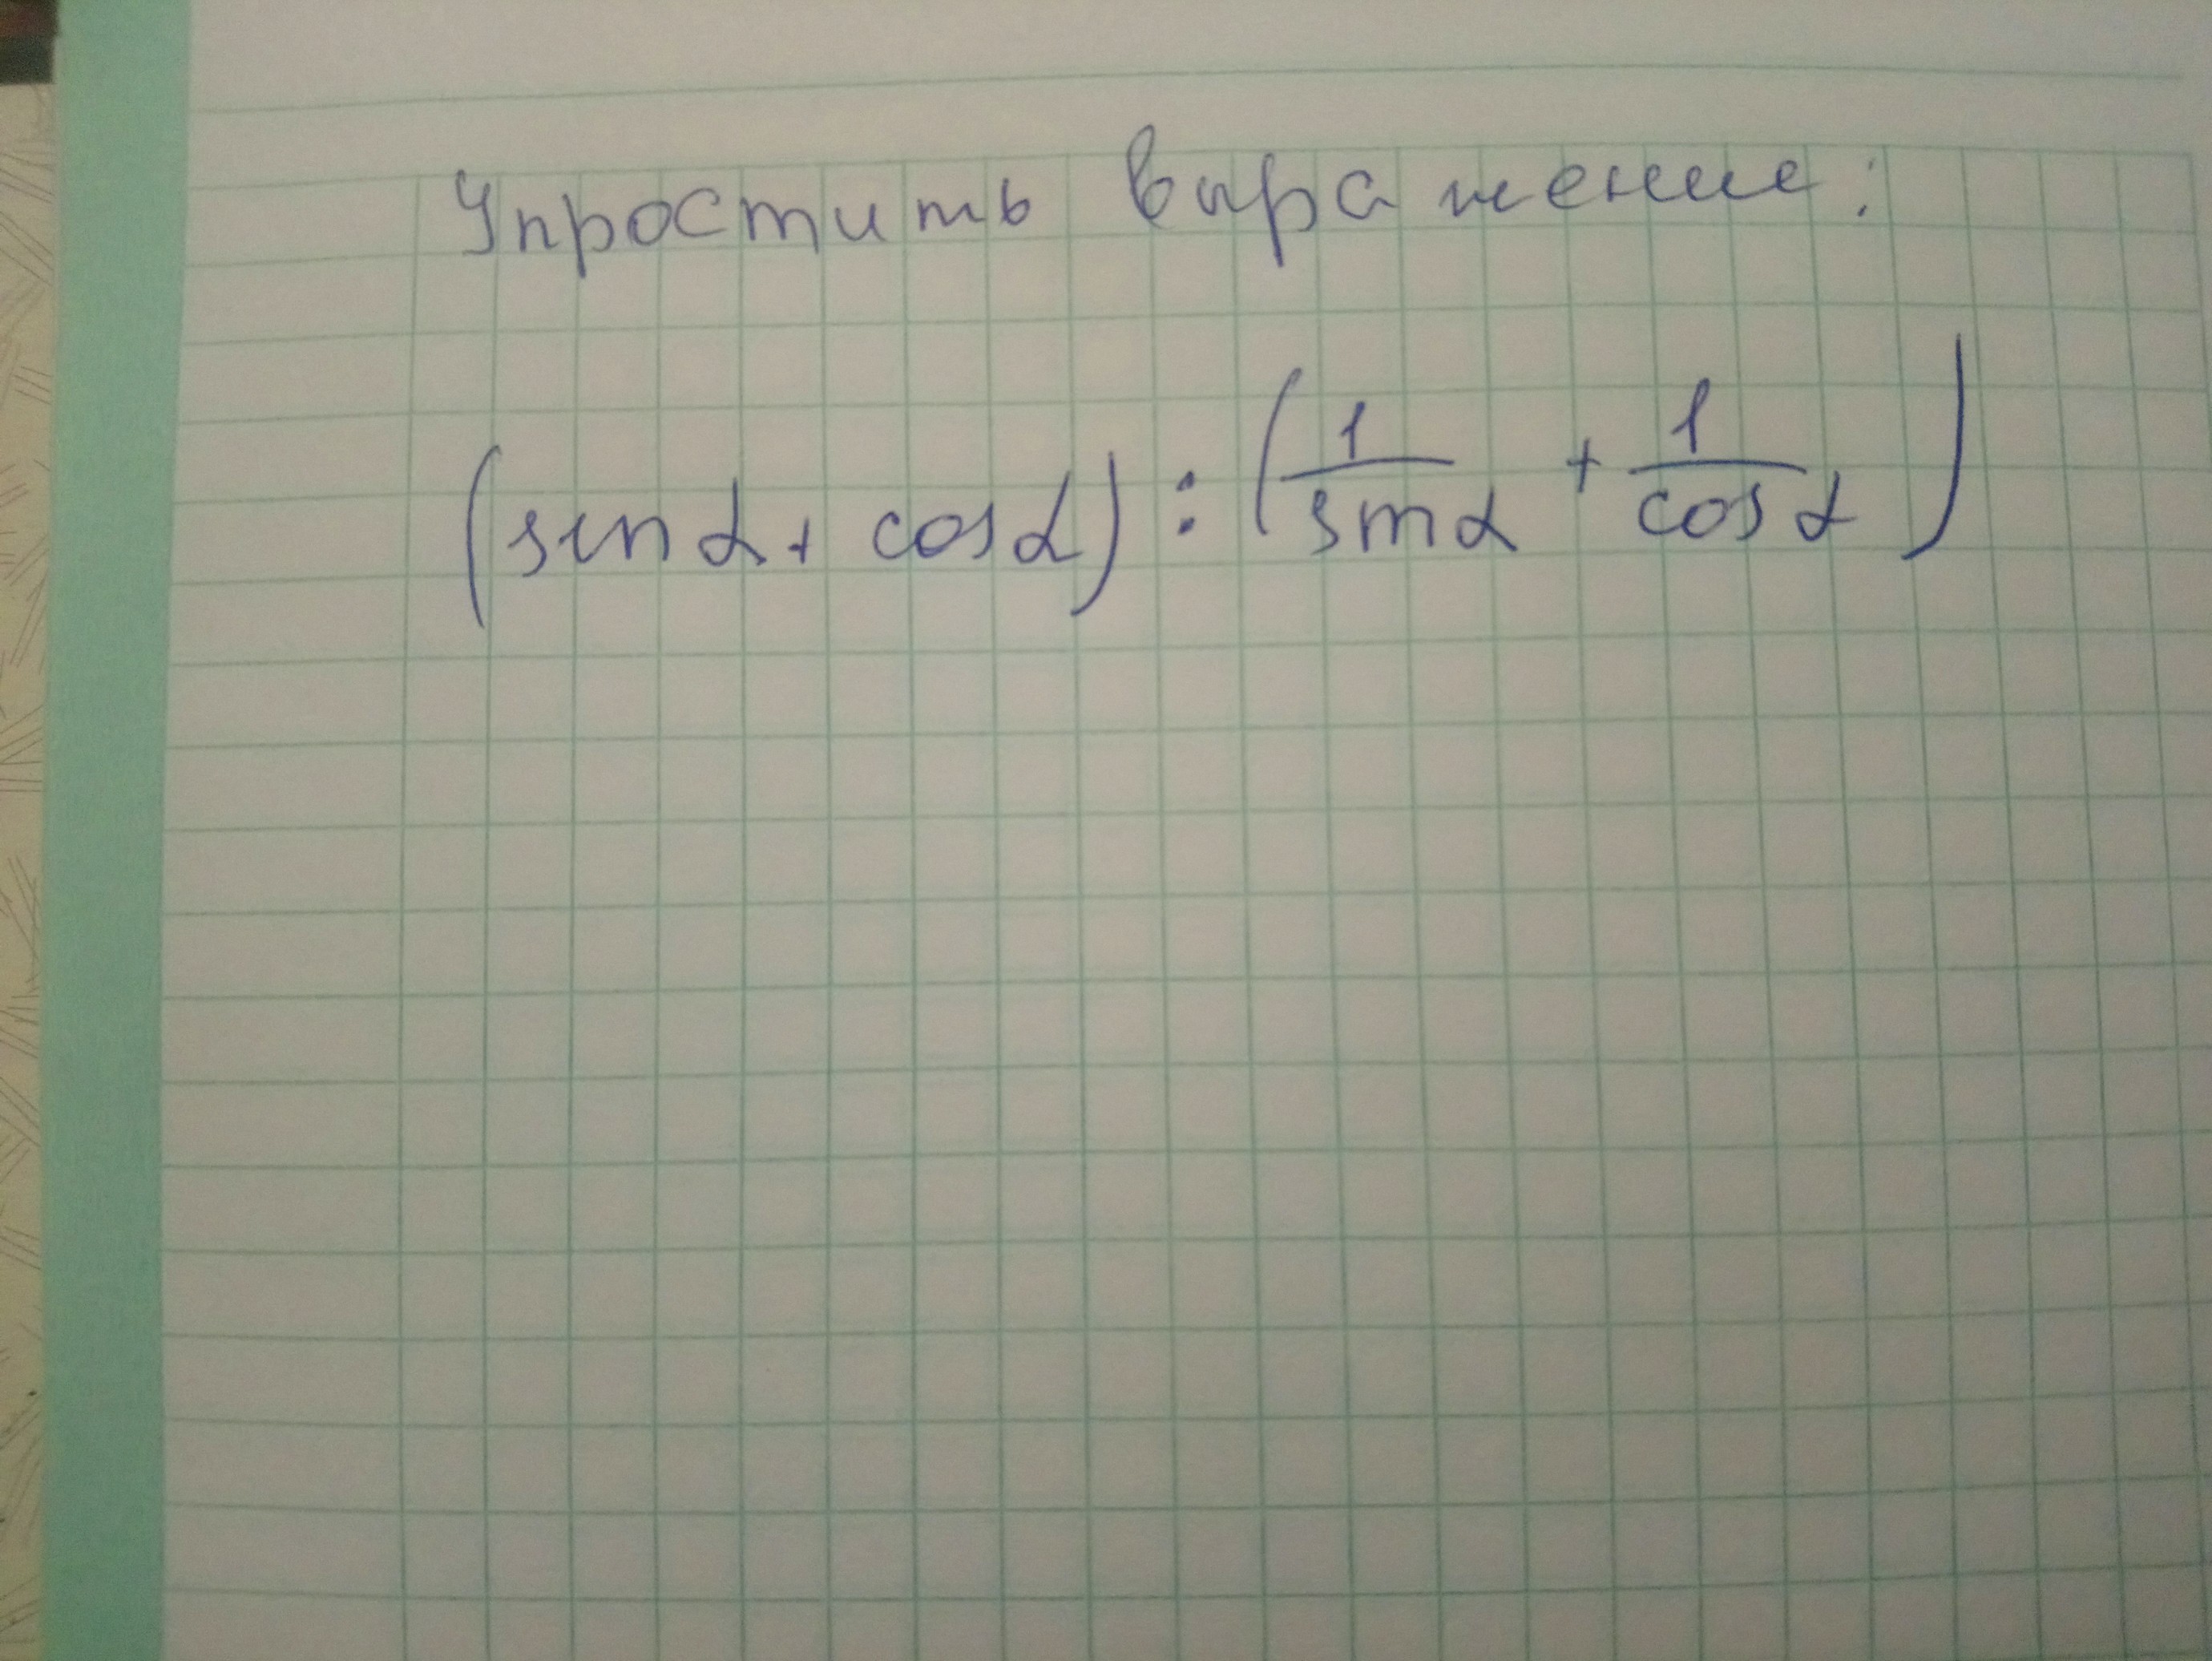 Упростить выражение:
(sin α + cos α) : (1/sin α + 1/cos α)